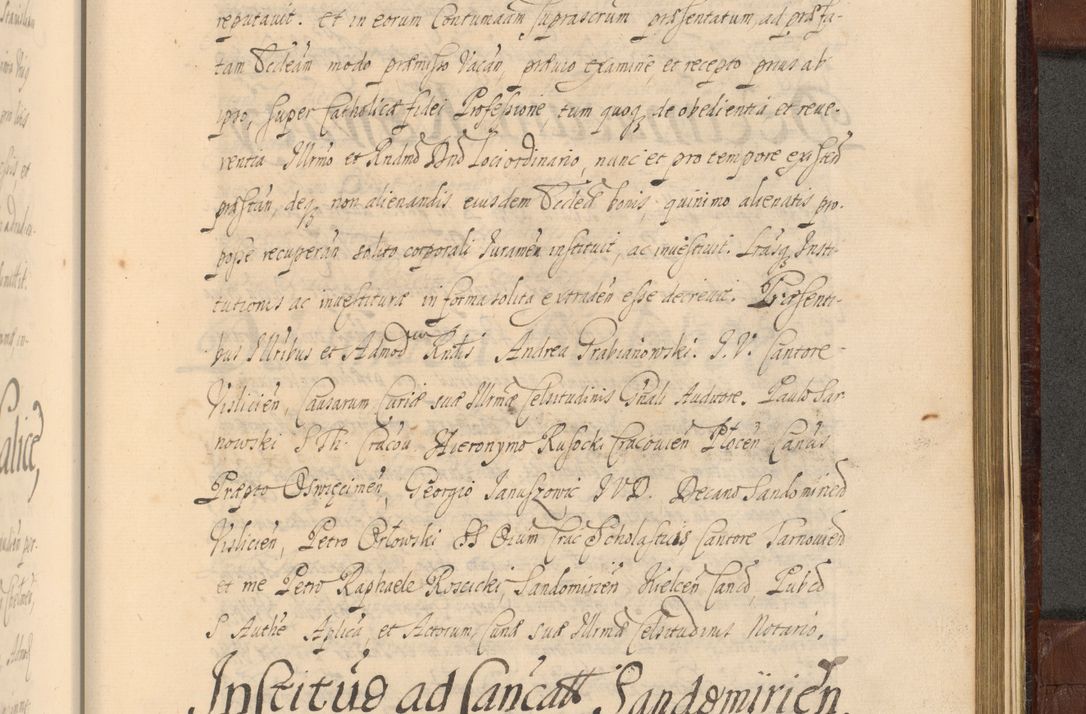 reputavit. et in eorum Contumaciam suprascrum præsentatum, ad præfa-
tam Eccleam modo præmisso Vacan, prævio examine, et recepto prius ab
ipso, super Catholicæ fidei Professione tum quoq de obedientia, et reve-
rentia Illrmo et Rndmo Dno Loci ordinario, nunc et pro tempore exised
præstan, deq non alienandis eiusdem Eccleæ bonis, quinimo alienatis pro-
posse recuperan solito corporali Juramen instituit, ac investivit. Lrasq Insti-
tutionis ac investituræ in forma solita extraden esse decrevit. Præsenti-
bus Illribus et Admod Rndis Andrea Grabianowski. I. V. Cantore
Vislicien, Causarum Curiæ suæ Illrmæ Celsitudinis Gnali Auditore. Paulo Sar-
nowski S Th. Cracov, Hieronymo Rusocki Cracovien Plocen Canus
Præpto Oswięcimen, Georgio Januszowic I V D. Decano Sandomirien
Vislicien, Petro Orłowski SS Oium Crac Scholasticis Cantore Tarnovien
et me Petro Raphaele Roscicki, Sandomirien Kielcen Canco, Pubco
S Authe Aplica, et Actorum Curiæ suæ Illrmæ Celsitudinis Notario.
Institůo ad Cancatt Sandomirien.